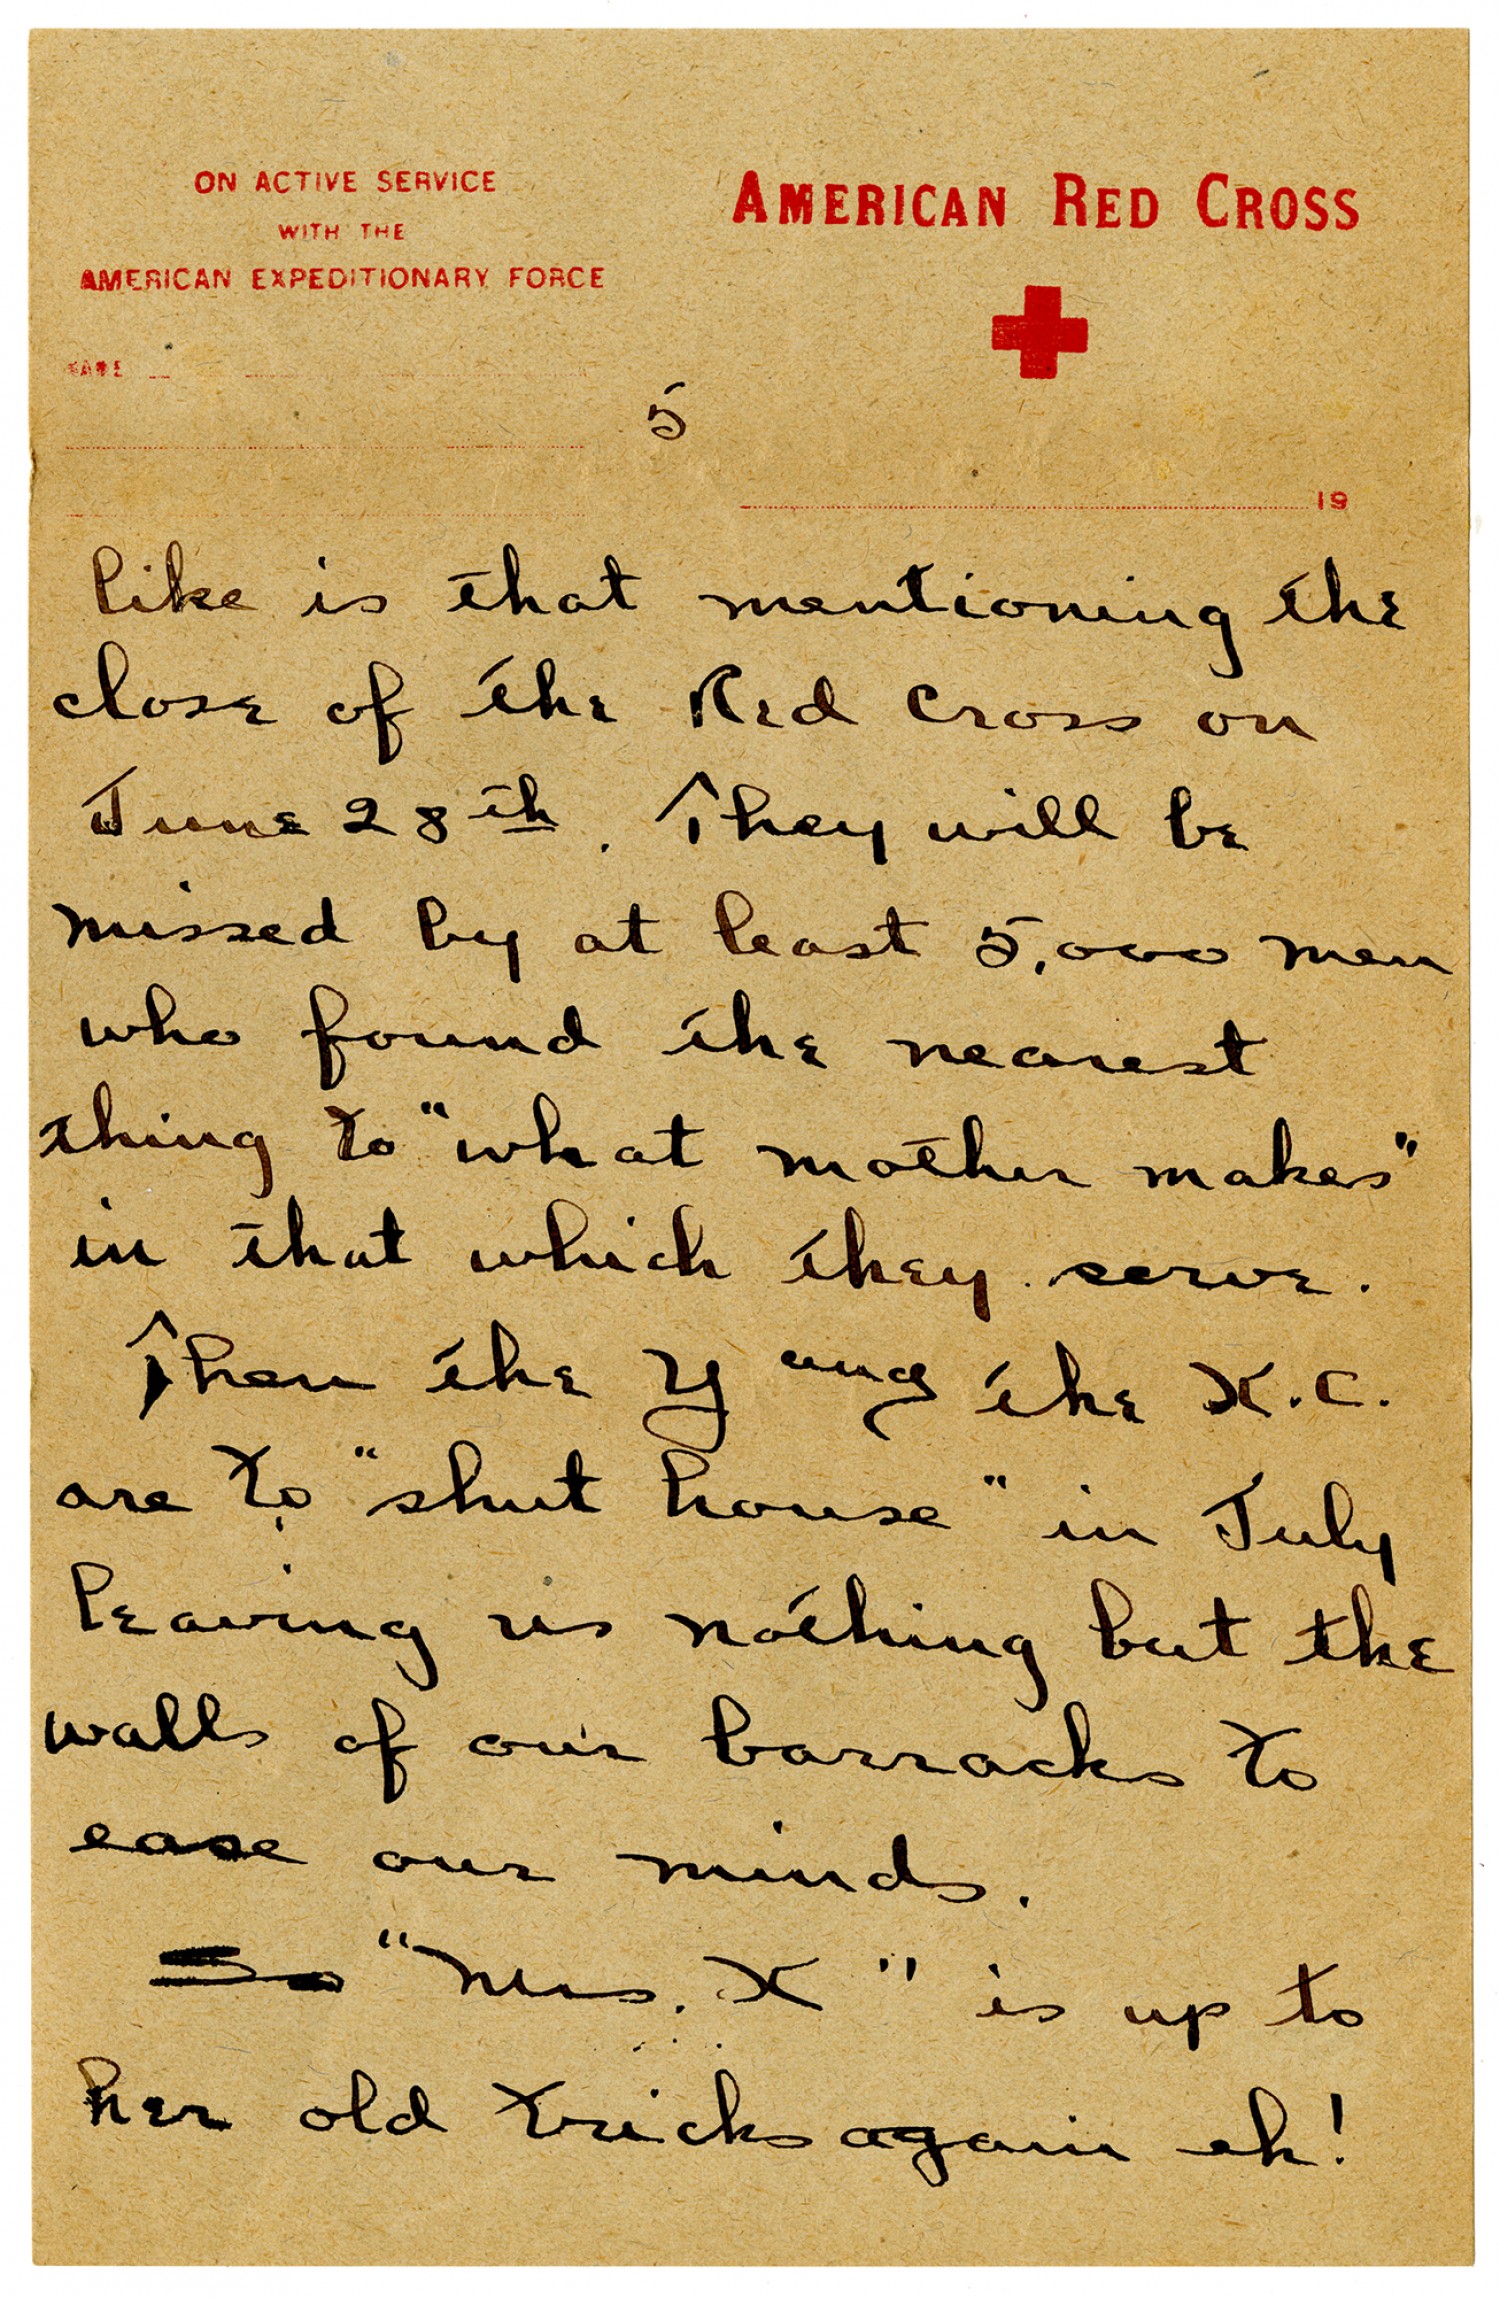 ON ACTIVE SERVICE
WITH THE
AMERICAN EXPEDITIONARY FORCE
AMERICAN RED CROSS
NAME
5
19
like is that mentioning the
close of the Red Cross on
June 28th. They will be
missed by at least 5,000 men
who found the nearest
thing to "what mother makes"
in that which they serve.
Then the Y and the K.C.
are to "shut house" in July
leaving us nothing but the
walls of our barracks to
ease our minds.
So "Mrs. X" is up to
her old tricks again eh!